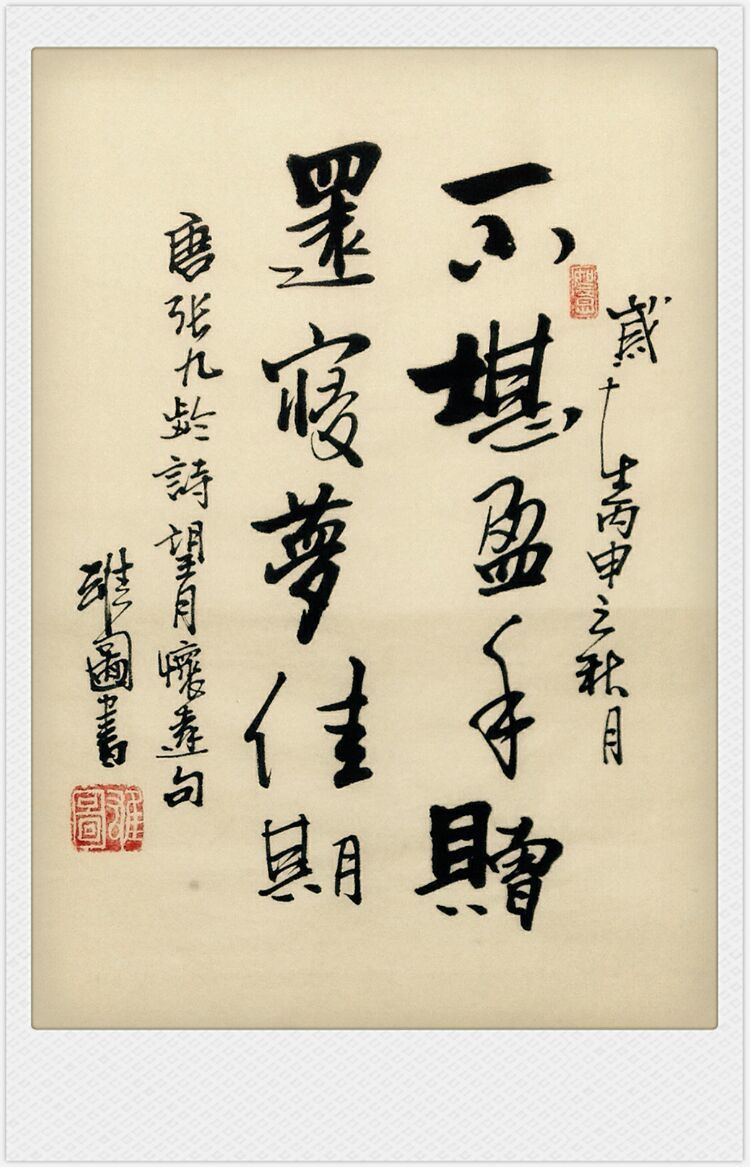 歲在丙申之秋月
不堪盈手贈
還寢夢佳期
唐張九齡詩望月懷遠句
圖書